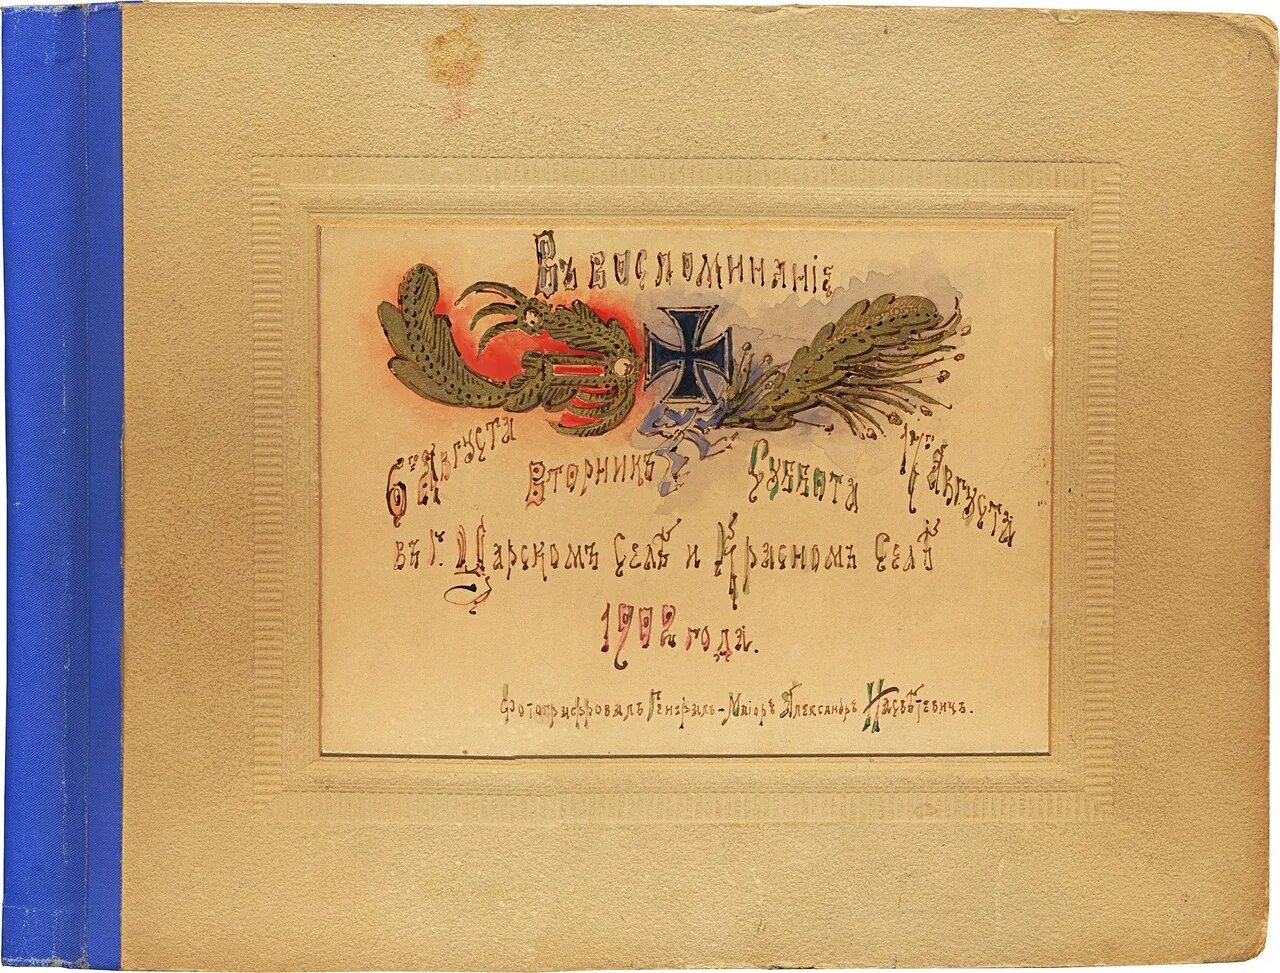 Въ воспоминанiе
6го Августа Вторникъ Суббота 17го Августа
въ г. Царскомъ Селѣ и Красномъ Селѣ
1902 года.
Фотографировалъ Генералъ-Маiоръ Александръ Насвѣтевичъ.